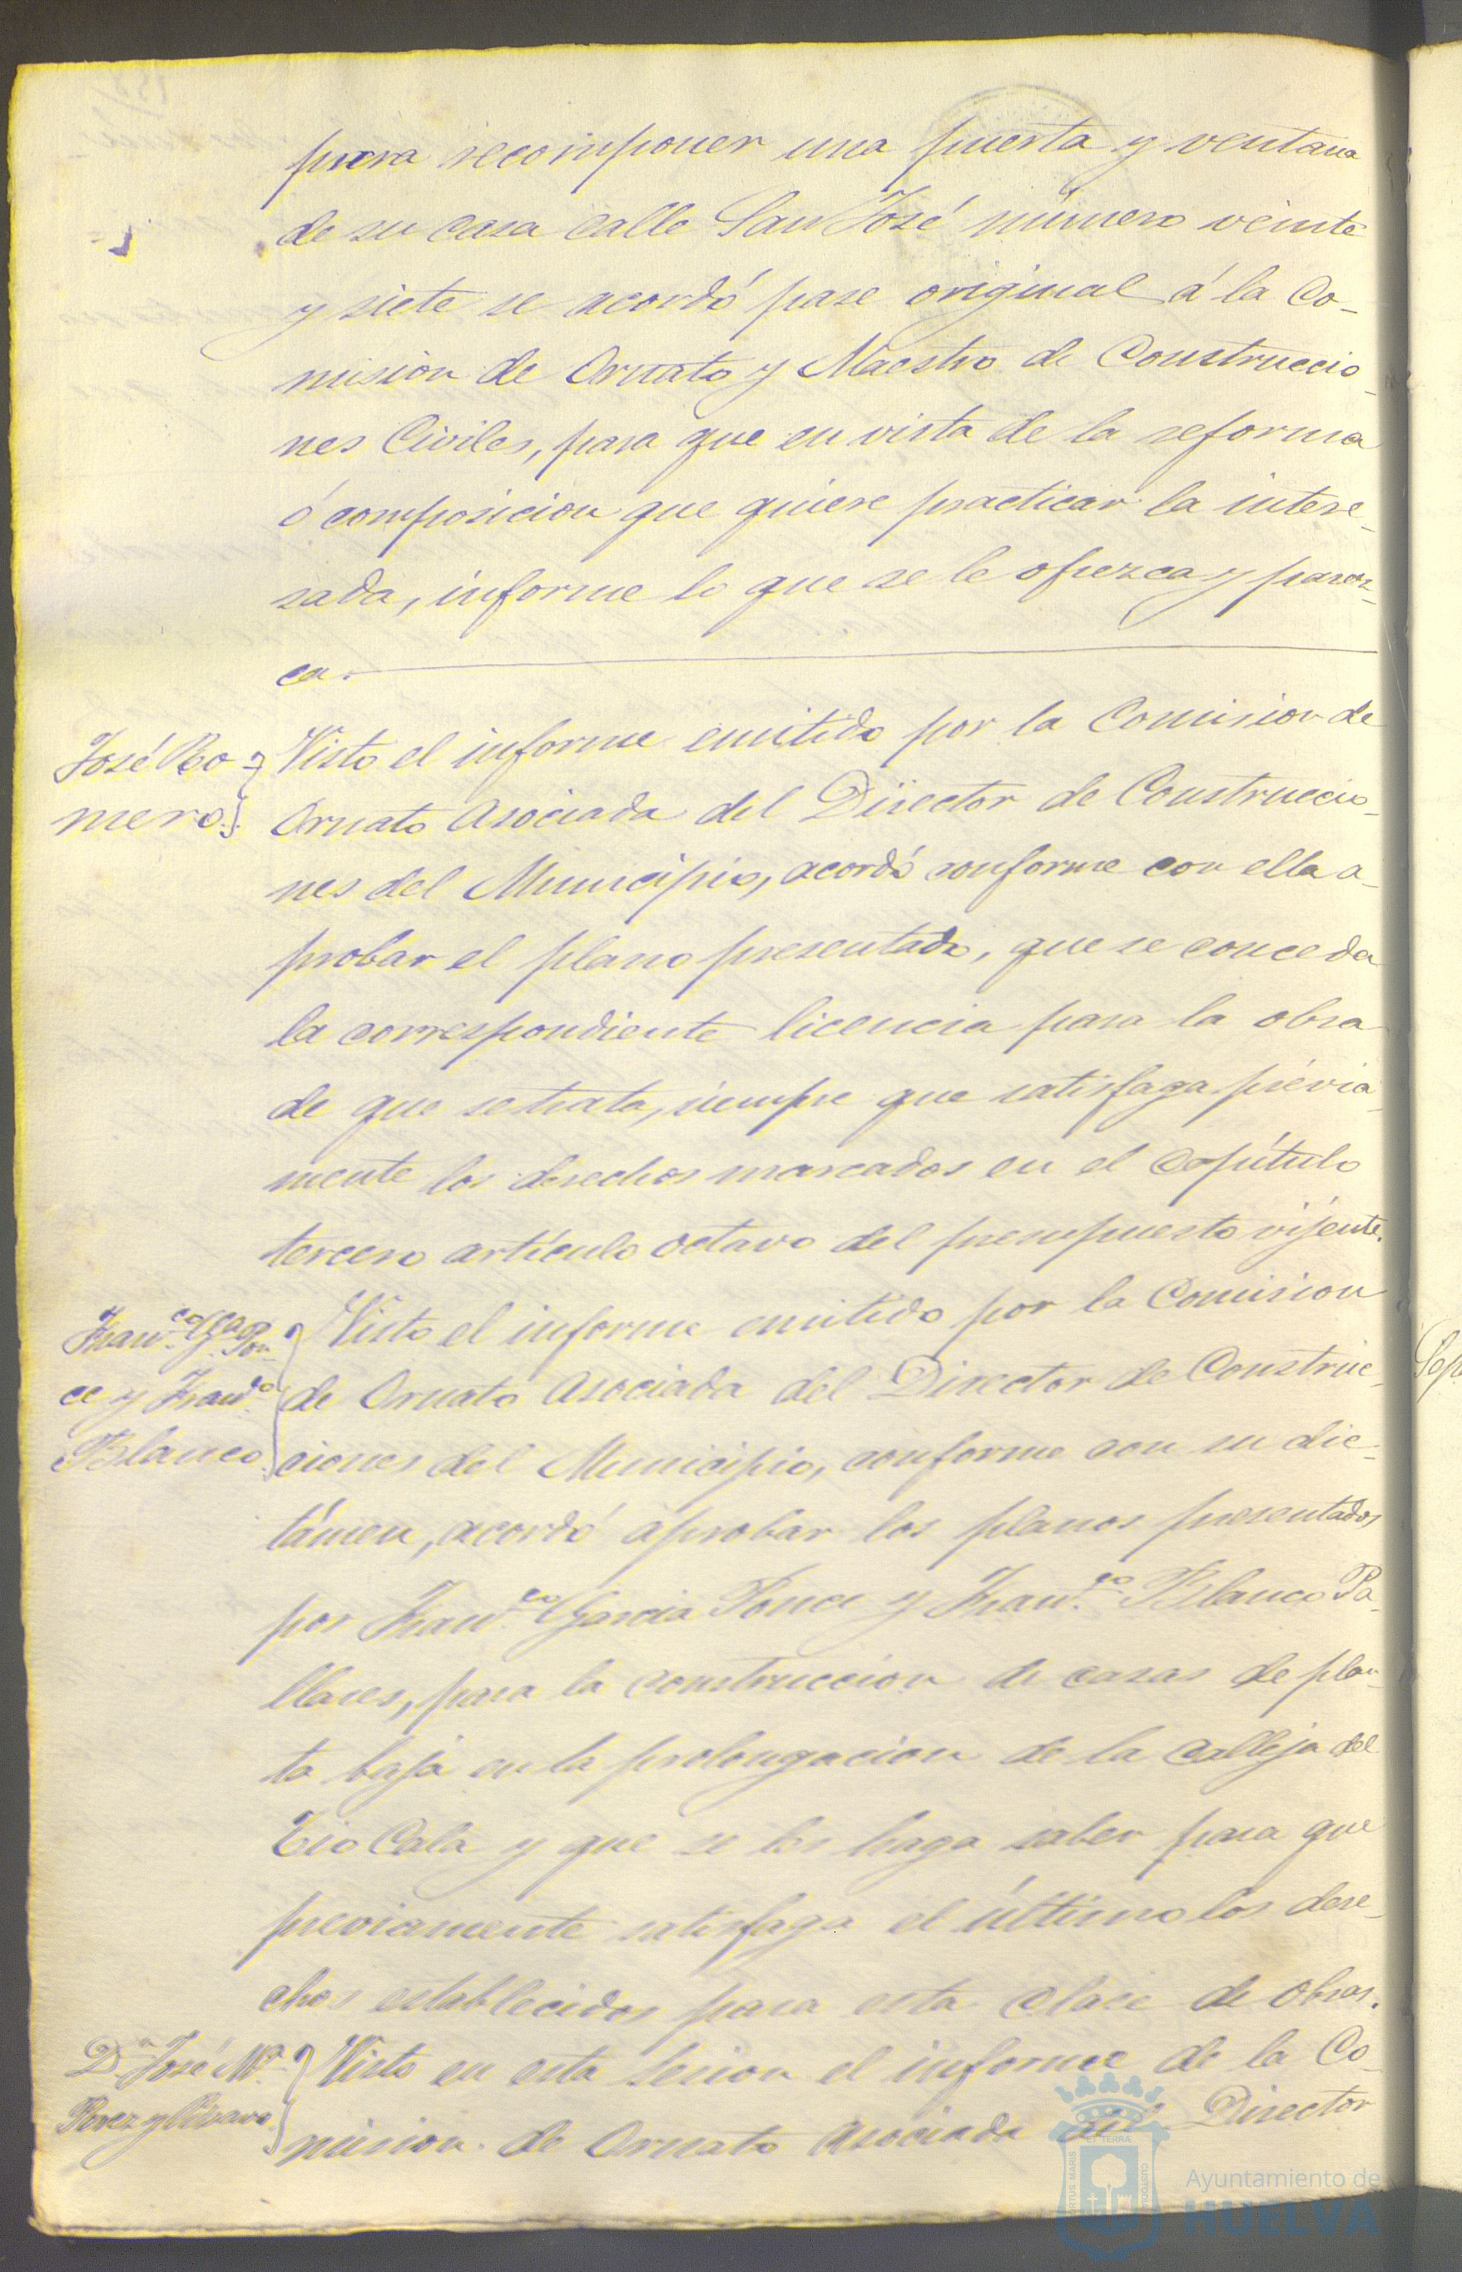 para recomponer una puerta y ventana
de su casa calle San José número veinte
y siete se acordó pase original á la Co-
mision de Ornato y Maestro de Construccio-
nes Civiles, para que en vista de la reforma
ó composicion que quiere practicar la intere-
sada, informe lo que se le ofrezca y parez-
ca.
José Ro-
mero.
Visto el informe emitido por la Comision de
Ornato Asociada del Director de Construccio-
nes del Municipio, acordó conforme con ella a-
probar el plano presentado, que se conceda
la correspondiente licencia para la obra
de que se trata, siempre que satisfaga prévia
mente los derechos marcados en el capítulo
tercero artículo octavo del presupuesto vijente.
Franco. Ga. Pon-
ce y Franco.
Blanco.
Visto el informe emitido por la Comision
de Ornato Asociada del Director de Construc-
ciones del Municipio, conforme con su dic-
támen, acordó aprobar los planos presentados
por Franco. Garcia Ponce y Franco. Blanco Pa-
llares, para la construccion de casas de plan-
ta baja en la prolongacion de la Calleja del
Tio Cala y que se les haga saber para que
previamente satisfaga el último los dere-
chos establecidos para esta clase de obras.
Dn. José Ma.
Perez y
Visto en esta sesion el informe de la Co-
mision de Ornato Asociada del Director
Ayuntamiento de
HUELVA